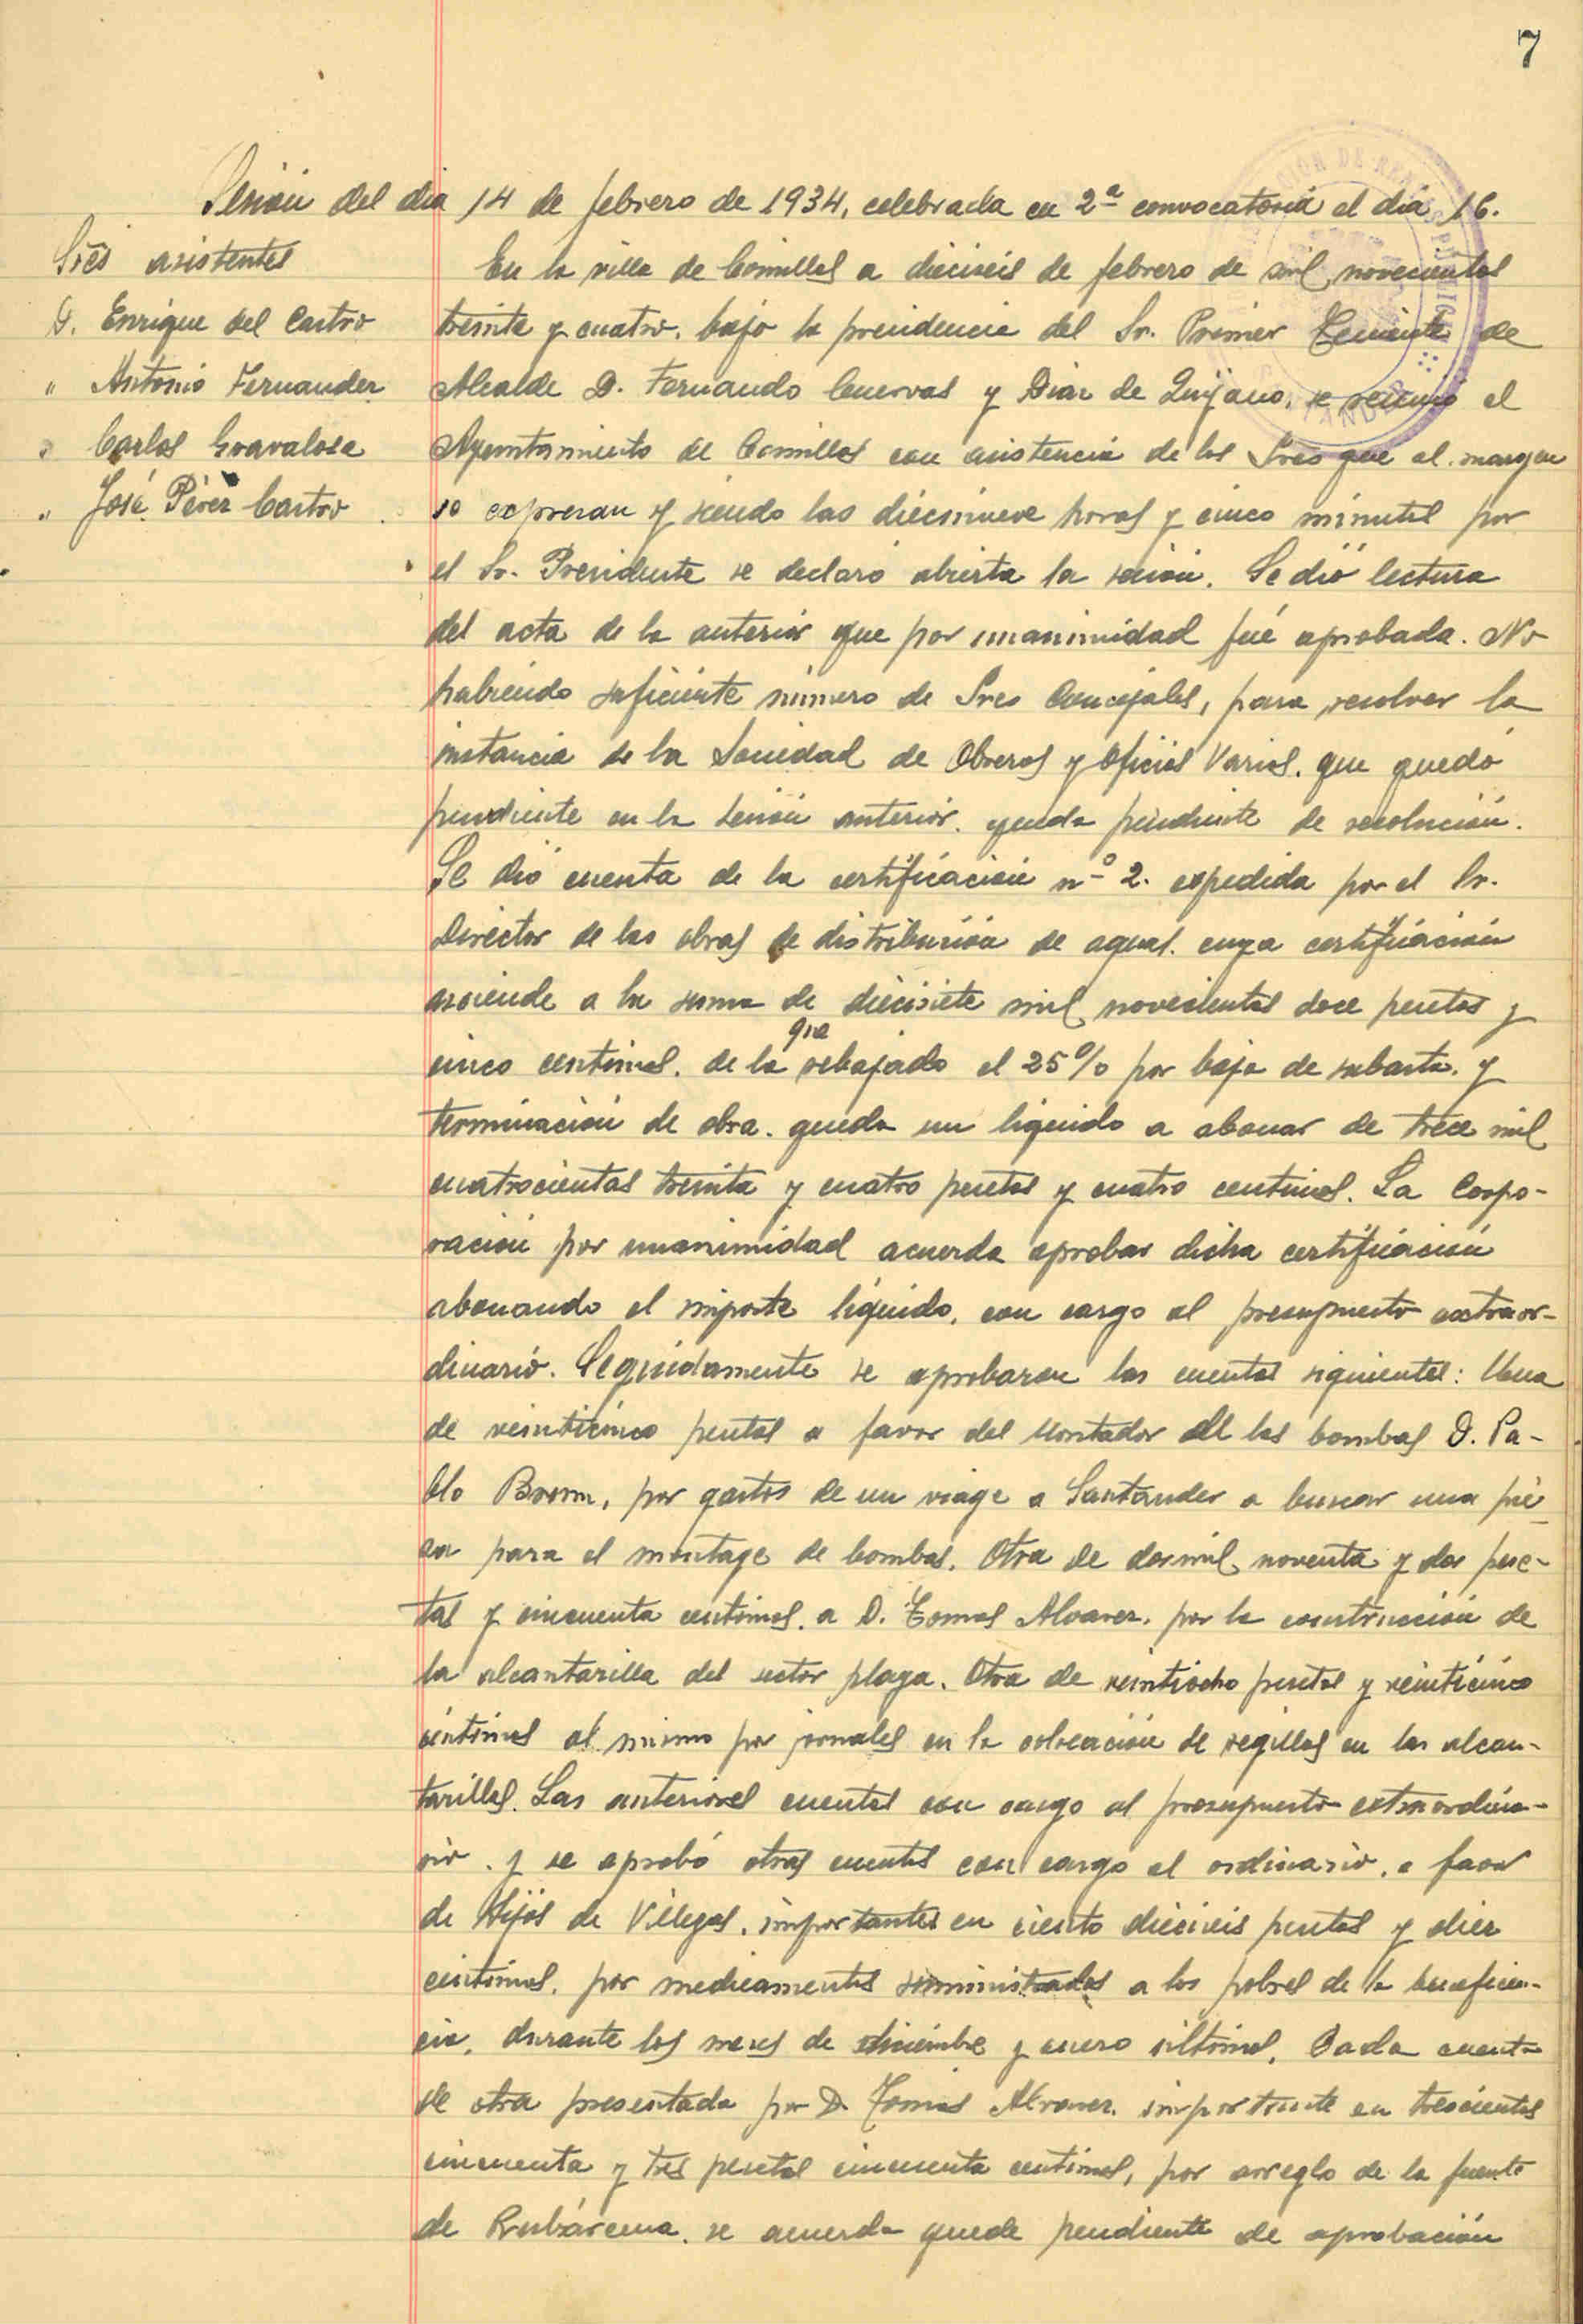 7
Sesión del dia 14 de febrero de 1934, celebrada en 2ª convocatoria el día 16.
Sres asistentes
D. Enrique del Castro
" Antonio Fernandez
" Carlos
" José Pérez Castro
En la villa de Comillas a dieciseis de febrero de mil novecientos
treinta y cuatro, bajo la presidencia del Sr. Primer Teniente de
Alcalde D. Fernando Cuervas y Diaz de Quijano, se reunió el
Ayuntamiento de Comillas con asistencia de los Sres que al margen
se expresan y siendo las diecinueve horas y cinco minutos por
el Sr. Presidente se declaró abierta la sesión. Se dió lectura
del acta de la anterior que por unanimidad fué aprobada. No
habiendo suficiente número de Sres Concejales, para resolver la
instancia de la Sociedad de Obreros y Oficios Varios, que quedó
pendiente en la sesión anterior, queda pendiente de resolución.
Se dió cuenta de la certificación nº 2. expedida por el Sr.
Director de las obras de distribución de aguas, cuya certificación
asciende a la suma de diecisiete mil novecientas doce pesetas y
cinco centimos, de la que rebajado el 25% por baja de subasta, y
terminación de obra, queda un líquido a abonar de trece mil
cuatrocientas treinta y cuatro pesetas y cuatro centimos. La Corpo-
ración por unanimidad acuerda aprobar dicha certificación
abonando el importe líquido, con cargo al presupuesto extraor-
dinario. Seguidamente se aprobaron las cuentas siguientes: Una
de veinticinco pesetas a favor del montador de las bombas D. Pa-
blo Brom, por gastos de un viage a Santander a buscar una pie-
za para el montage de bombas. Otra de dosmil noventa y dos pese-
tas y cincuenta centimos, a D. Tomas Alvarez, por la construcción de
la alcantarilla del sector playa. Otra de veintiocho pesetas y veinticinco
céntimos al mismo por jornales en la colocación de regillas en las alcan-
tarillas. Las anteriores cuentas con cargo al presupuesto extraordina-
rio, y se aprobó otras cuentas con cargo al ordinario, a favor
de Hijos de Villegas, importantes en ciento dieciseis pesetas y diez
centimos, por medicamentos suministrados a los pobres de la beneficen-
cia, durante los meses de diciembre y enero últimos. Dada cuenta
de otra presentada por D. Tomás Alvarez, importante en trescientas
cincuenta y tres pesetas cincuenta centimos, por arreglo de la fuente
de Rubárcena, se acuerda quede pendiente de aprobación